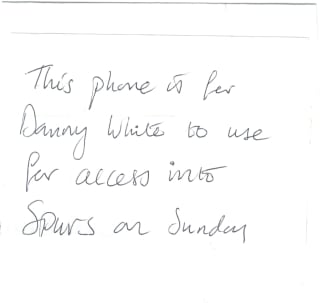 This phone is for
Danny White to use
for access into
Spurs on Sunday